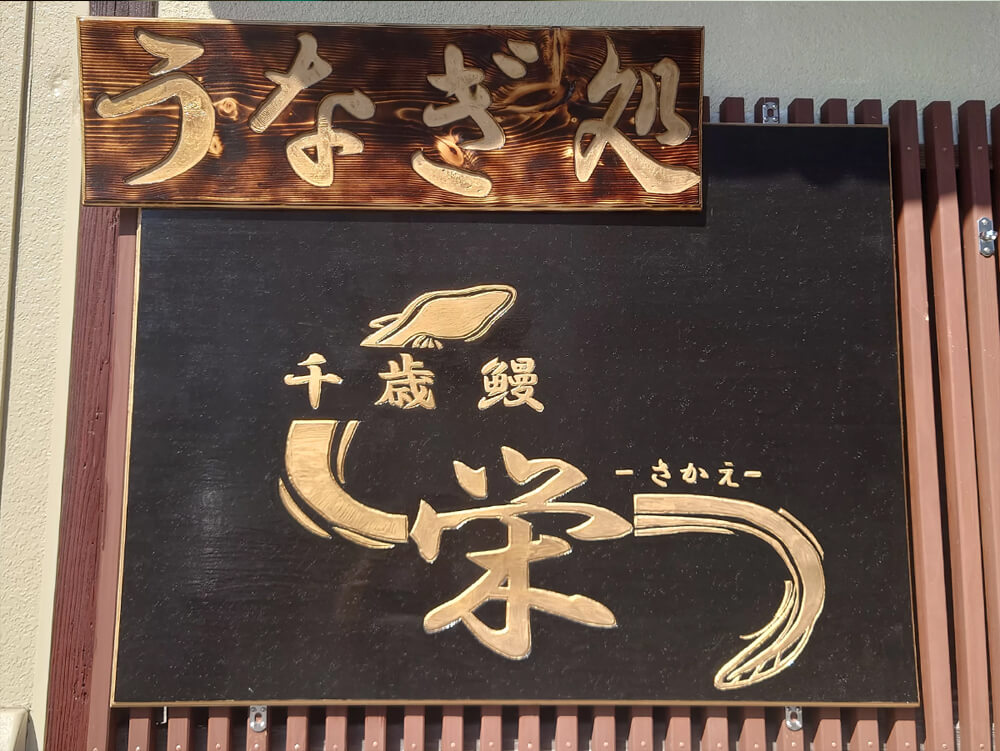 うなぎ処
千歳鰻
-さかえ-
栄